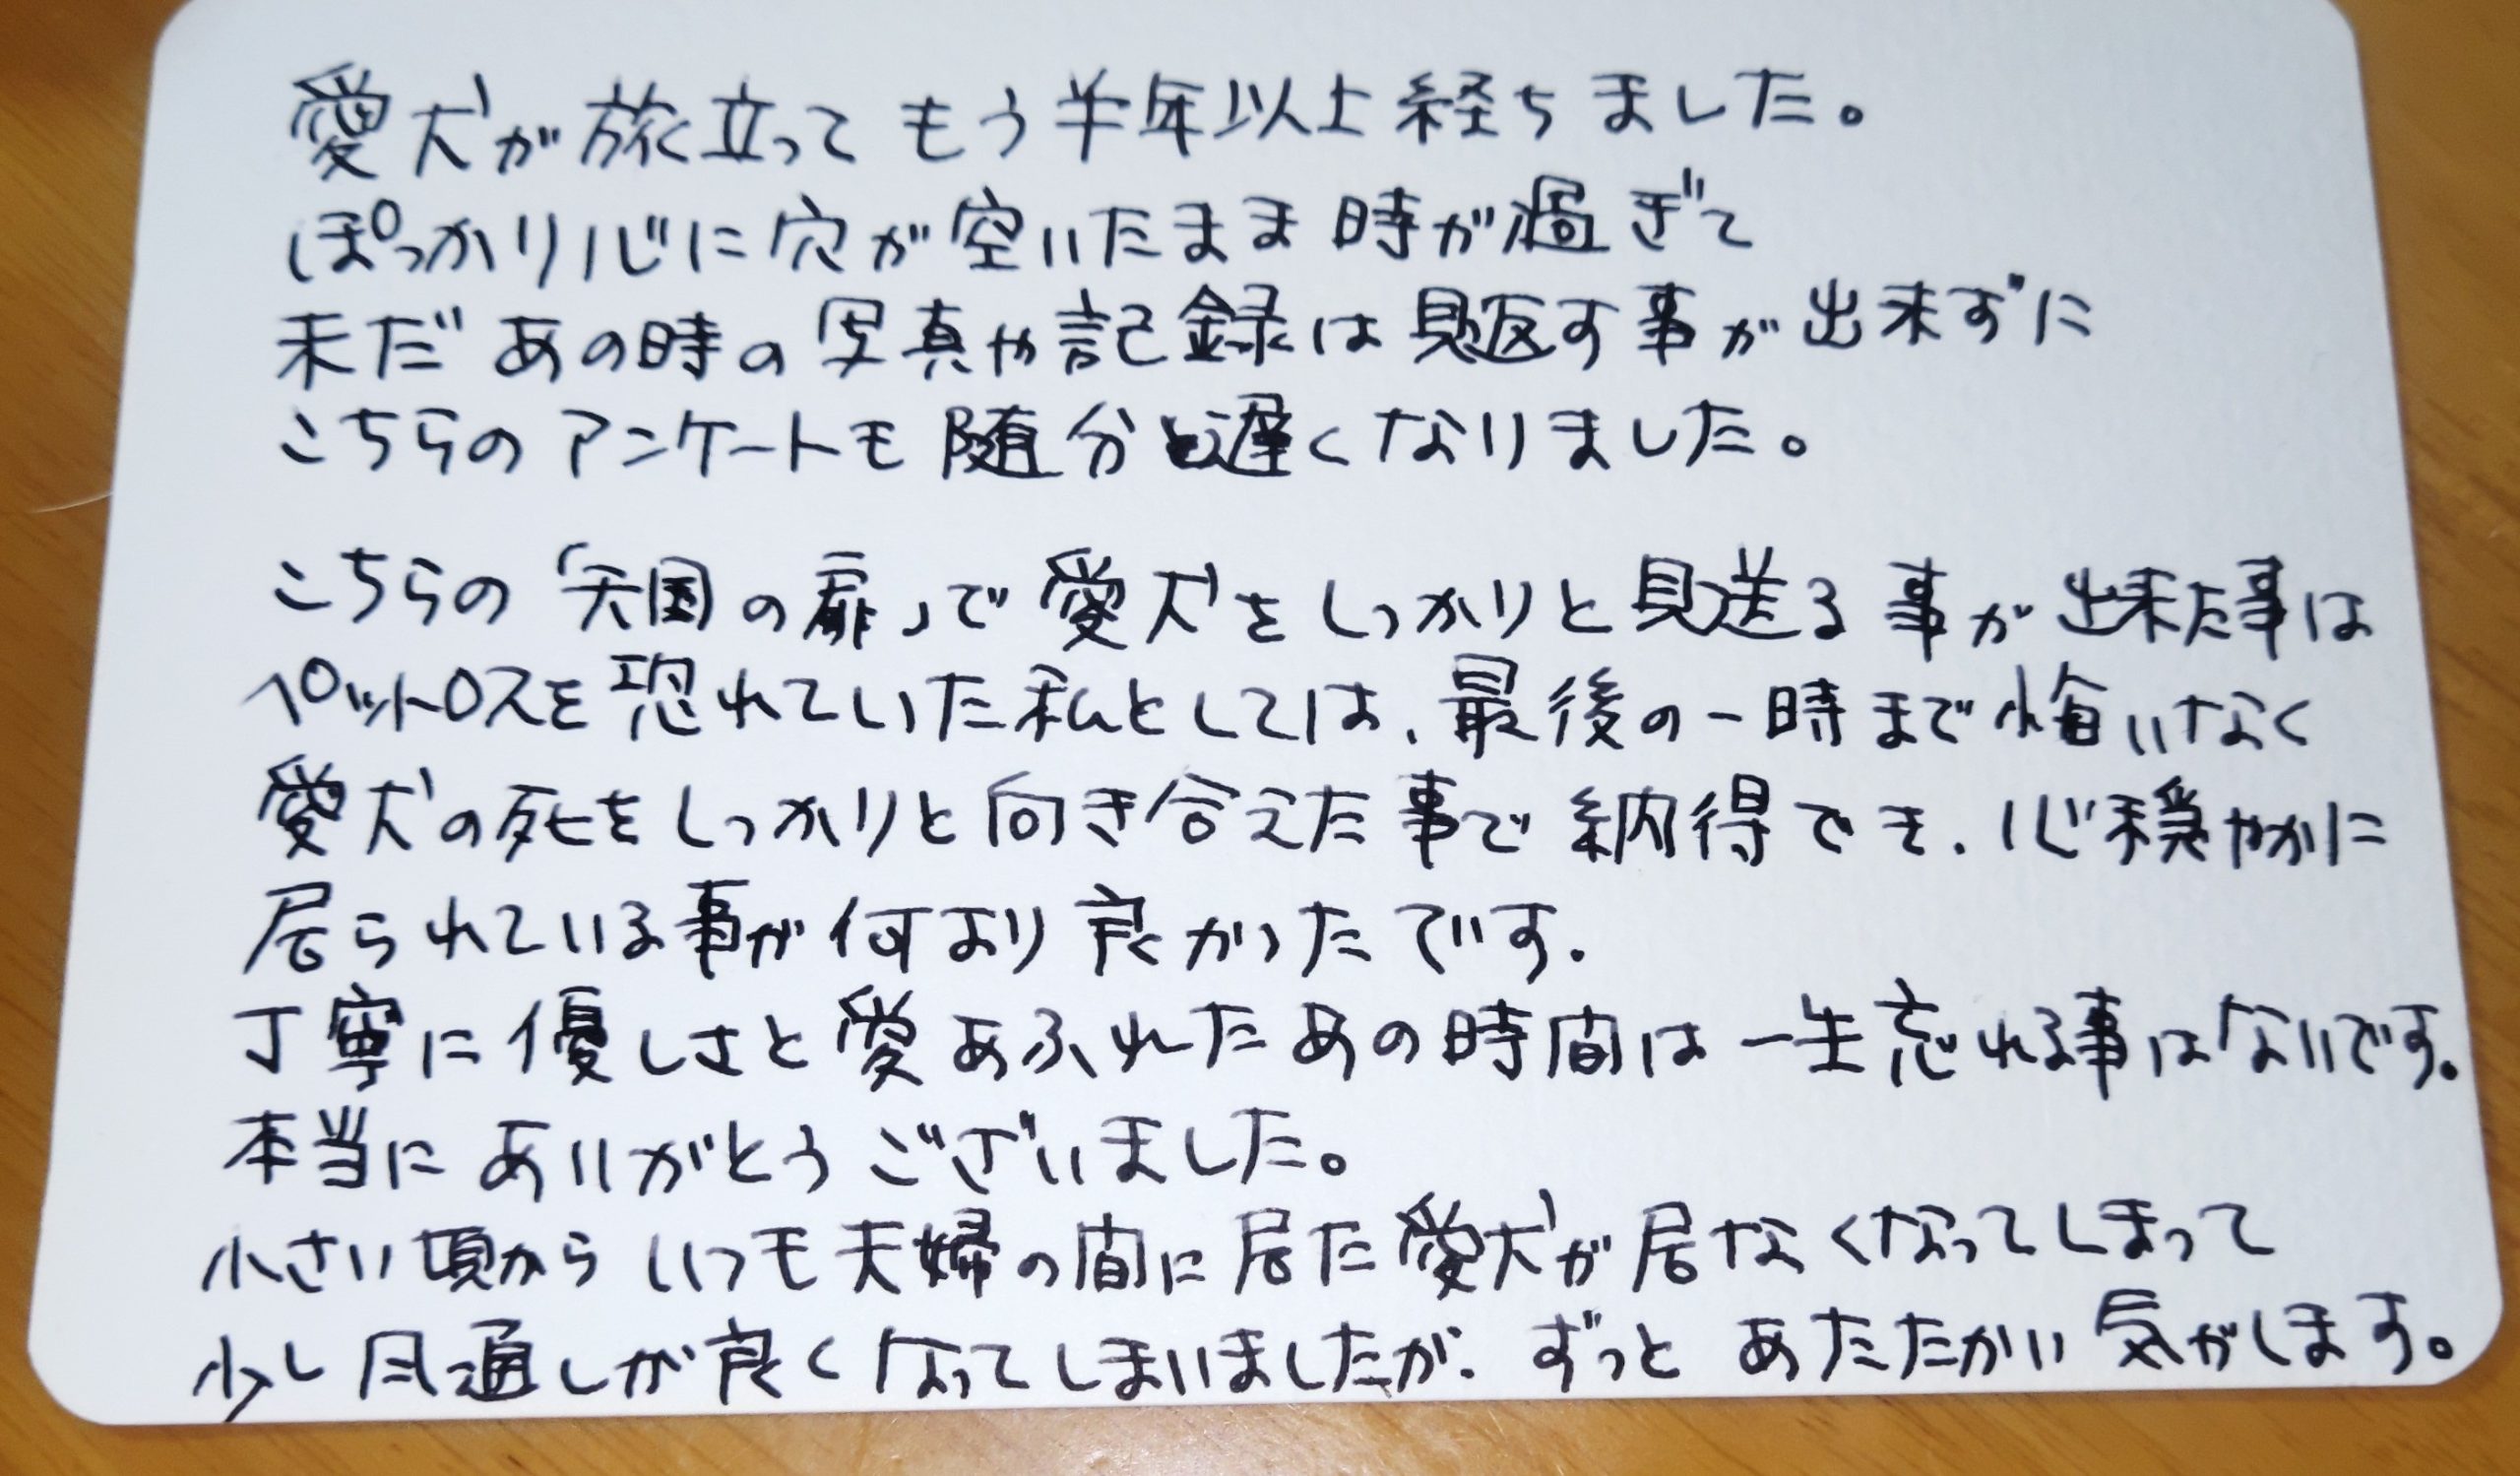 愛犬が旅立ってもう半年以上経ちました。
ぽっかり心に穴が空いたまま時が過ぎて
未だあの時の写真や記録は見返す事が出来ずに
こちらのアンケートも随分と遅くなりました。
こちらの「天国の扉」で愛犬をしっかりと見送る事が出来た事は
ペットロスを恐れていた私としては、最後の一時まで悔いなく
愛犬の死をしっかりと向き合えた事で納得でき、心穏やかに
居られている事が何より良かったです。
丁寧に優しさと愛あふれたあの時間は一生忘れる事はないです。
本当にありがとうございました。
小さい頃からいつも夫婦の間に居た愛犬が居なくなってしまって
少し風通しが良くなってしまいましたが、ずっとあたたかい気がします。